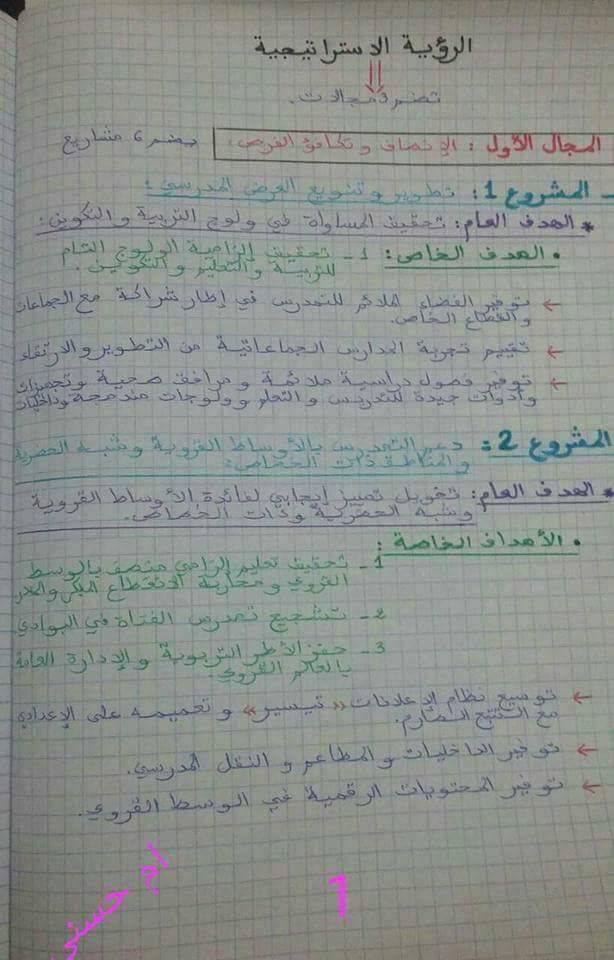 الرؤية الاستراتيجية
تضم 3 مجالات.
المجال الأول : الإنصاف و تكافؤ الفرص : يضم 6 مشاريع
- المشروع 1 : تطوير و تنويع العرض المدرسي :
* الهدف العام : تحقيق المساواة في ولوج التربية و التكوين :
• الهدف الخاص : 1 - تحقيق إلزامية الولوج التام
للتربية و التعليم و التكوين .
← توفير الفضاء الملائم للتمدرس في إطار شراكة مع الجماعات
و القطاع الخاص.
← تقييم تجربة المدارس الجماعاتية من التطوير و الارتقاء
← توفير فصول دراسية ملائمة و مرافق صحية و تجهيزات
و أدوات جيدة للتدريس و التعلم و ولوجات مندمجة وداخليات
المشروع 2 : دعم التمدرس بالأوساط القروية و شبه الحضرية
و المناطق ذات الخصاص :
* الهدف العام : تخويل تمييز إيجابي لفائدة الأوساط القروية
و شبه الحضرية و ذات الخصاص.
• الأهداف الخاصة :
1 - تحقيق تعليم إلزامي منصف بالوسط
القروي و محاربة الانقطاع المبكر و الهدر
2 - تشجيع تمدرس الفتاة في البوادي
3 - حفز الأطر التربوية و الإدارة العامة
بالعالم القروي.
← توسيع نظام الإعانات "تيسير" و تعميمه على الإعدادي
مع التتبع الصارم.
← توفير الداخليات و المطاعم و النقل المدرسي.
← توفير المحتويات الرقمية في الوسط القروي.
ام حسني
1